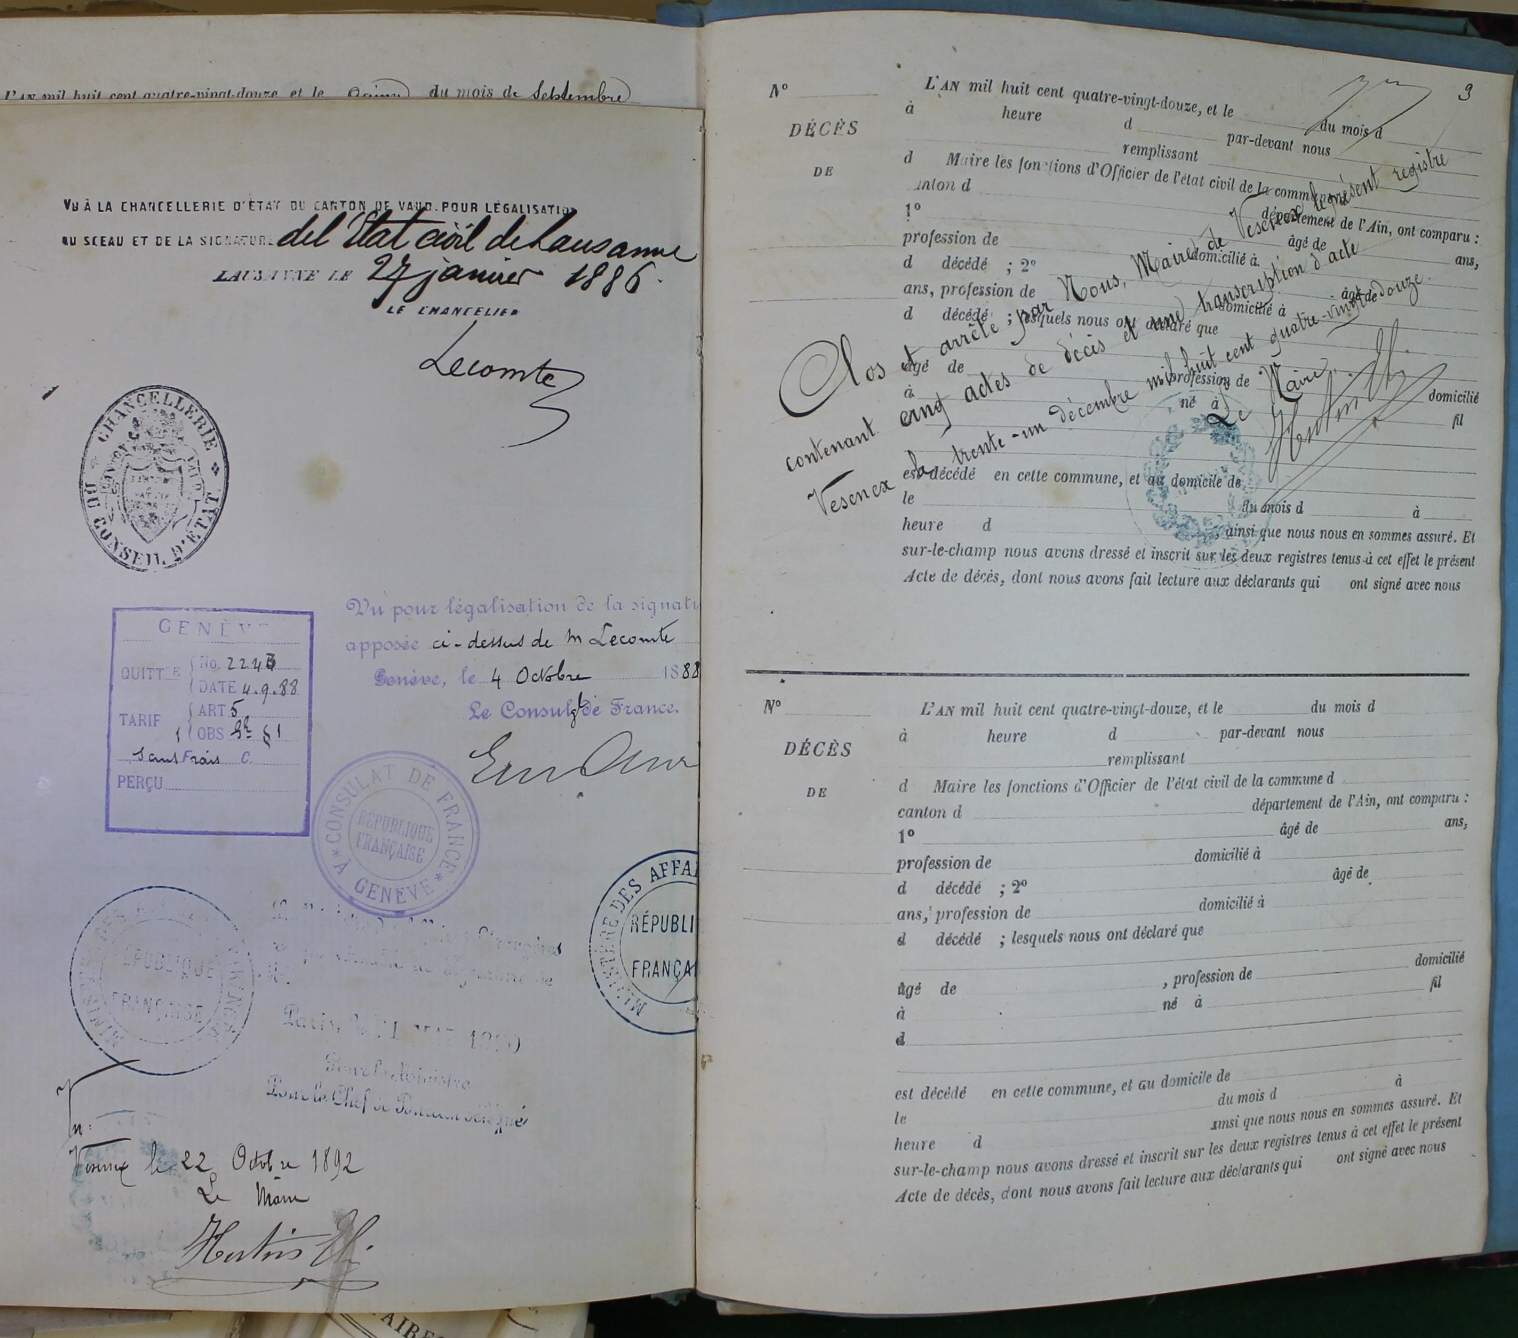 L'AN mil huit cent quatre-vingt-douze et le du mois de Septembre
VU À LA CHANCELLERIE D'ÉTAT DU CANTON DE VAUD. POUR LÉGALISATION
DU SCEAU ET DE LA SIGNATURE del'État civil de Lausanne
LAUSANNE LE 27 janvier 1886.
LE CHANCELIER
Lecomte
CHANCELLERIE
DU CONSEIL D'ÉTAT
CANTON DE VAUD
GENÈVE
QUITTCE No. 2243
DATE 4.9.88
TARIF ART 5
OBS § 1
Sans Frais C.
PERÇU
Vu pour légalisation de la signatu
apposée ci-dessus de M Lecomte
Genève, le 4 Octobre 1888
Le Consul gl de France.
CONSULAT DE FRANCE
À GENÈVE
RÉPUBLIQUE
FRANÇAISE
MINISTÈRE DES AFFAI
RÉPUBLI
FRANÇAI
MINISTÈRE DES
RÉPUBLIQUE
FRANÇAISE
Paris, le
Pour le Ministre
Pour le Chef de Bureau délégué
Vesenex le 22 Octobre 1892
Le Maire
3
N°
DÉCÈS
DE
L'AN mil huit cent quatre-vingt-douze, et le du mois d
à heure d par-devant nous
remplissant
d Maire les fonctions d'Officier de l'état civil de la commune d
canton d département de l'Ain, ont comparu :
1° âgé de ans,
profession de domicilié à
d décédé ; 2° âgé de
ans, profession de domicilié à
d décédé ; lesquels nous ont déclaré que
âgé de profession de domicilié
à né à fil
est décédé en cette commune, et au domicile de
le du mois d à
heure d , ainsi que nous nous en sommes assuré. Et
sur-le-champ nous avons dressé et inscrit sur les deux registres tenus à cet effet le présent
Acte de décès, dont nous avons fait lecture aux déclarants qui ont signé avec nous
Clos et arrêté par Nous, Maire de Vesenex le présent registre
contenant cinq actes de décès et une transcription d'acte
Vesenex le trente-un décembre mil huit cent quatre-vingt-douze.
Le Maire.
N°
DÉCÈS
DE
L'AN mil huit cent quatre-vingt-douze, et le du mois d
à heure d par-devant nous
remplissant
d Maire les fonctions d'Officier de l'état civil de la commune d
canton d département de l'Ain, ont comparu :
1° âgé de ans,
profession de domicilié à
d décédé ; 2° âgé de
ans, profession de domicilié à
d décédé ; lesquels nous ont déclaré que
âgé de , profession de domicilié
à né à fil
d
est décédé en cette commune, et au domicile de
le du mois d à
heure d ainsi que nous nous en sommes assuré. Et
sur-le-champ nous avons dressé et inscrit sur les deux registres tenus à cet effet le présent
Acte de décès, dont nous avons fait lecture aux déclarants qui ont signé avec nous